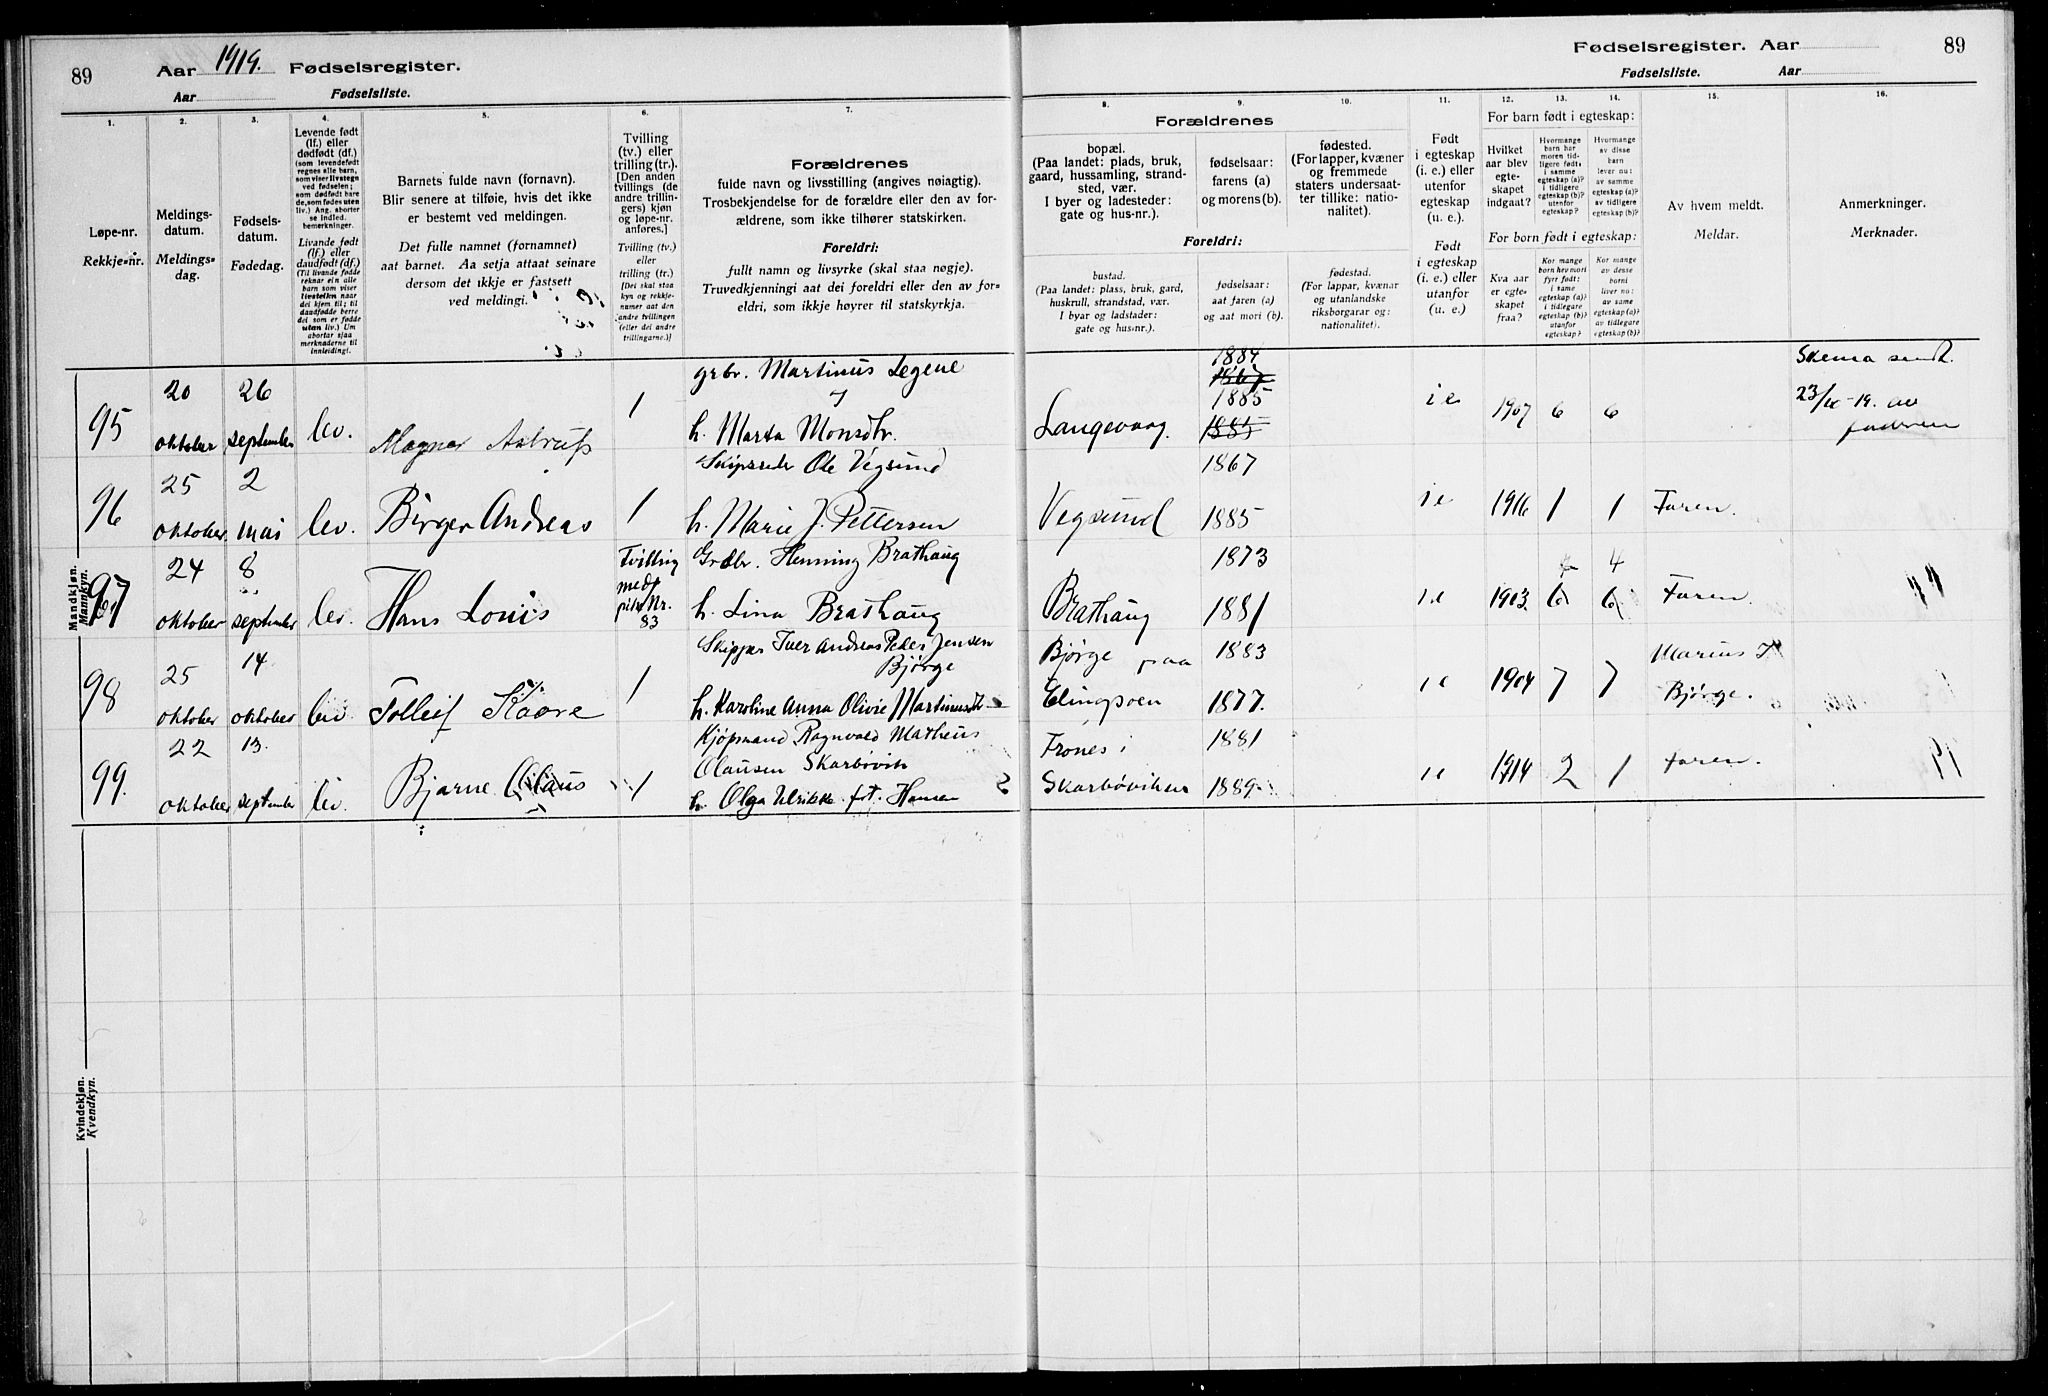 89 Aar 1919. Fødselsregister.
Aar Fødselsliste.
Fødselsregister. Aar 89
Fødselsliste. Aar
1.
Løpe-nr.
Rekkje-nr.
2.
Meldings-
datum.
Meldings-
dag.
3.
Fødsels-
datum.
Fødedag.
4.
Levende født
(lf.) eller
dødfødt (df.)
(som levendefødt
regnes alle barn,
som viser livstegn
ved fødselen;
som dødfødt bare
de, som fødes uten
liv.) Ang. aborter
se indled.
bemerkninger.
Livande født
(lf.) eller
daudfødt (df.)
(Til livande fødde
reknar ein alle
barn som viser
livsteikn naar
dei kjem til; til
daudfødde berre
dei som er fødde
utan liv.) Um
abortar sjaa
merknaderne til
innleiding!.
5.
Barnets fulde navn (fornavn).
Blir senere at tilføie, hvis det ikke
er bestemt ved meldingen.
Det fulle namnet (fornamnet)
aat barnet. Aa setja attaat seinare
dersom det ikkje er fastsett
ved meldingi.
6.
Tvilling
(tv.) eller
trilling (tr.).
[Den anden
tvillings (de
andre trillin-
gers) kjøn
og løpe-nr.
anføres.]
Tvilling (tv.)
eller
trilling (tr.)
[Dei skal staa
kyn og rekkje-
numer aat den
andre tvillingen
(eller dei andre
trillingarne.)]
7.
Forældrenes
fulde navn og livsstilling (angives nøiagtig).
Trosbekjendelse for de forældre eller den av for-
ældrene, som ikke tilhører statskirken.
Foreldri:
fullt namn og livsyrke (skal staa nøgje).
Truvedkjenningi aat dei foreldri eller den av for-
eldri, som ikkje høyrer til statskyrkja.
Forældrenes
8.
bopæl.
(Paa landet: plads, bruk,
gaard, hussamling, strand-
sted, vær.
I byer og ladesteder:
gate og hus-nr.).
9.
fødselsaar:
farens (a)
og morens (b).
10.
fødested.
(For lapper, kvæner
og fremmede
staters undersaat-
ter tillike: natio-
nalitet).
Foreldri:
bustad.
(Paa landet: plass, bruk, gard,
huskrull, strandstad, vær.
I byar og ladstader:
gate og hus-nr.).
fødselsaar:
aat faren (a)
og aat mori (b).
fødestad.
(For lappar, kvænar
og utanlandske
riksborgarar og:
nationalitet).
11.
Født
i egteskap
(i. e.) eller
utenfor
egteskap
(u. e.).
Født
i egteskap
(i. e.) eller
utanfor
(u. e.)
For barn født i egteskap:
12.
Hvilket
aar blev
egte-
skapet
indgaat?
13.
Hvormange
barn har
moren tid-
ligere født,
i samme
egteskap (a)?
i tidligere
egteskap (b)?
utenfor
egteskap?
14.
Hvormange
av disse
barn
lever nu:
av samme
egteskap (a)?
av tidligere
egteskap (b)?
For born født i egteskap:
Kva aar
er egte-
skapet
fraa?
Kor mange
born hev mori
fyrr født:
i same
egteskap (a)?
i tidlegare
egteskap (b)?
utanfor
egteskap?
Kor mange
av desse
borni
liver no:
av same
egteskap (a)?
av tidlegare
egteskap (b)?
15.
Av hvem meldt.
Meldar.
16.
Anmerkninger.
Merknader.
Mandkjøn.
Mannkyn.
95 20 oktober 26 september lev. Magnar Astrup 1
grbr. Martinus Legene
h. Marta Monsdtr.
Langevaag. 1884 1867 1885 1885 i e 1907 6 6
Skema sendt.
23/ -19. av
faderen
96 25 oktober 2 mai lev. Birger Andreas 1
Skipsreder Ole Vegsund
h. Marie J. Pettersen
Vegsund 1867 1885 i e 1916 1 1 Faren.
97 24 oktober 8 september lev. Hans Louis Tvilling med pike Nr. 83
Grdbr. Henning Brathaug
h. Lina Brathaug
Brathaug 1873 1881 i e 1903 6 4 6 Faren.
98 25 oktober 14 oktober lev. Tolleif Kaare 1
Skipper Iver Andreas Peder Jensen
Bjørge
h. Karoline Anna Olivie Martinusdtr
Bjørge paa
Elingsøen 1883 1877. i e 1904 7 7 Marius
Bjørge.
99. 22 oktober 13. september lev. Bjarne Olaus 1
Kjøpmand Ragnvald Matheus
Olausen Skarbøvik
h. Olga Ulrikke fst. Hansen
Frones i
Skarbøviken 1881 1889 i e 1914 2 1 Faren.
Kvindekjøn.
Kvendkyn.